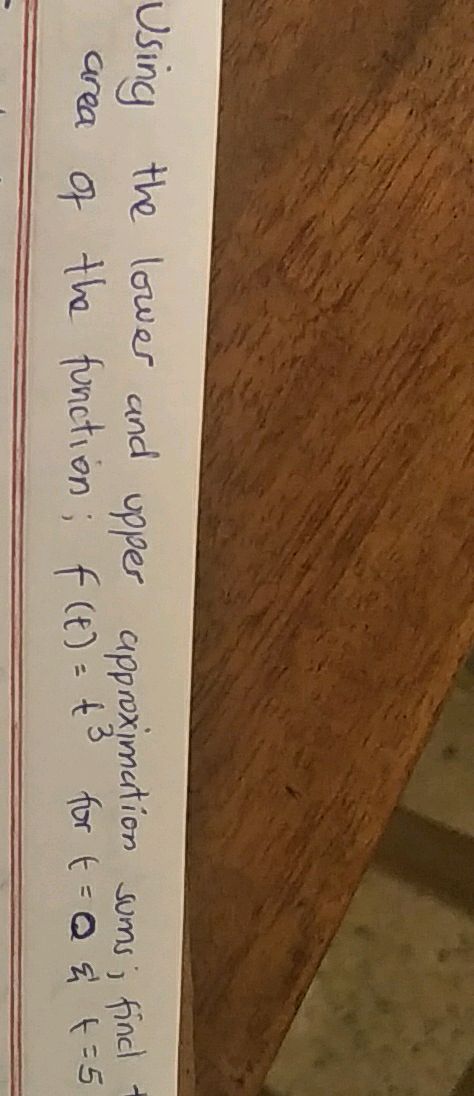 Using the lower and upper approximation sums; find
area of the function; f(t) = t³ for t = 0 & t = 5